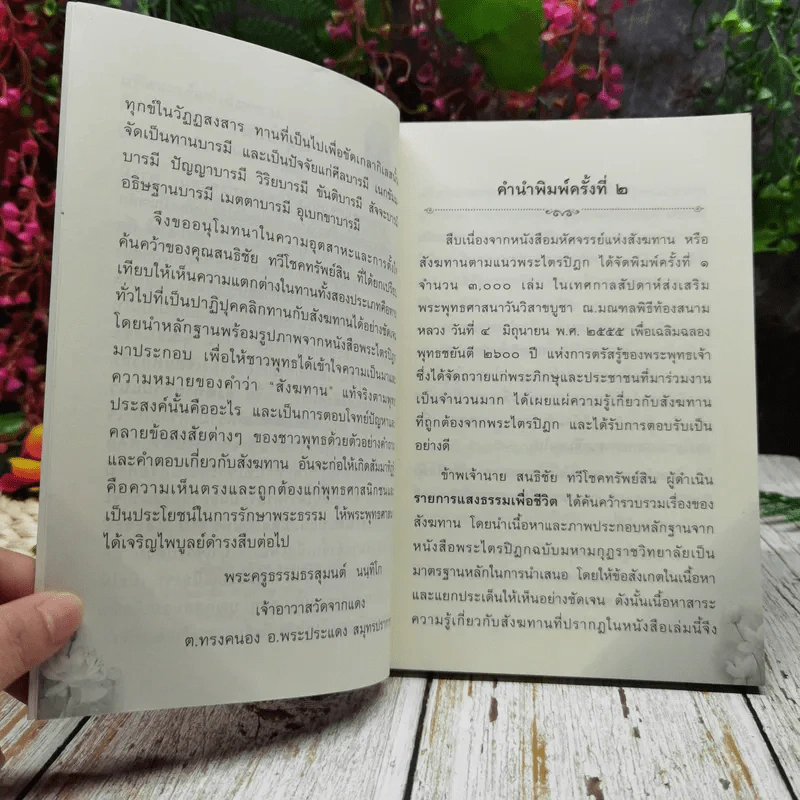 ทุกข์ในวัฏฏสงสาร ทานที่เป็นไปเพื่อขัดเกลากิเลสนั้น
จัดเป็นทานบารมี และเป็นปัจจัยแก่ศีลบารมี เนกขัมม
บารมี ปัญญาบารมี วิริยบารมี ขันติบารมี สัจจะบารมี
อธิษฐานบารมี เมตตาบารมี อุเบกขาบารมี
จึงขออนุโมทนาในความอุตสาหะและการตั้งใจ
ค้นคว้าของคุณสนธิชัย ทวีโชคทรัพย์สิน ที่ได้ยกเปรียบ
เทียบให้เห็นความแตกต่างในทานทั้งสองประเภทคือทาน
ทั่วไปที่เป็นปาฏิปุคคลิกทานกับสังฆทานได้อย่างชัดเจน
โดยนำหลักฐานพร้อมรูปภาพจากหนังสือพระไตรปิฎก
มาประกอบ เพื่อให้ชาวพุทธได้เข้าใจความเป็นมาและ
ความหมายของคำว่า "สังฆทาน" แท้จริงตามพุทธ
ประสงค์นั้นคืออะไร และเป็นการตอบโจทย์ปัญหา
คลายข้อสงสัยต่างๆ ของชาวพุทธด้วยตัวอย่างคำถาม
และคำตอบเกี่ยวกับสังฆทาน อันจะก่อให้เกิดสัมมาทิฏฐิ
คือความเห็นตรงและถูกต้องแก่พุทธศาสนิกชนและ
เป็นประโยชน์ในการรักษาพระธรรม ให้พระพุทธศาสนา
ได้เจริญไพบูลย์ดำรงสืบต่อไป
พระครูธรรมธรสุมนต์ นนฺทิโก
เจ้าอาวาสวัดจากแดง
ต.ทรงคนอง อ.พระประแดง สมุทรปราการ
คำนำพิมพ์ครั้งที่ ๒
สืบเนื่องจากหนังสือมหัศจรรย์แห่งสังฆทาน หรือ
สังฆทานตามแนวพระไตรปิฎก ได้จัดพิมพ์ครั้งที่ ๑
จำนวน ๓,๐๐๐ เล่ม ในเทศกาลสัปดาห์ส่งเสริม
พระพุทธศาสนาวันวิสาขบูชา ณ.มณฑลพิธีท้องสนาม
หลวง วันที่ ๔ มิถุนายน พ.ศ. ๒๕๕๕ เพื่อเฉลิมฉลอง
พุทธชยันตี ๒๖๐๐ ปี แห่งการตรัสรู้ของพระพุทธเจ้า
ซึ่งได้จัดถวายแก่พระภิกษุและประชาชนที่มาร่วมงาน
เป็นจำนวนมาก ได้เผยแผ่ความรู้เกี่ยวกับสังฆทาน
ที่ถูกต้องจากพระไตรปิฎก และได้รับการตอบรับเป็น
อย่างดี
ข้าพเจ้านาย สนธิชัย ทวีโชคทรัพย์สิน ผู้ดำเนิน
รายการแสงธรรมเพื่อชีวิต ได้ค้นคว้ารวบรวมเรื่องของ
สังฆทาน โดยนำเนื้อหาและภาพประกอบหลักฐานจาก
หนังสือพระไตรปิฎกฉบับมหามกุฏราชวิทยาลัยเป็น
มาตรฐานหลักในการนำเสนอ โดยให้ข้อสังเกตในเนื้อหา
และแยกประเด็นให้เห็นอย่างชัดเจน ดังนั้นเนื้อหาสาระ
ความรู้เกี่ยวกับสังฆทานที่ปรากฏในหนังสือเล่มนี้จึง